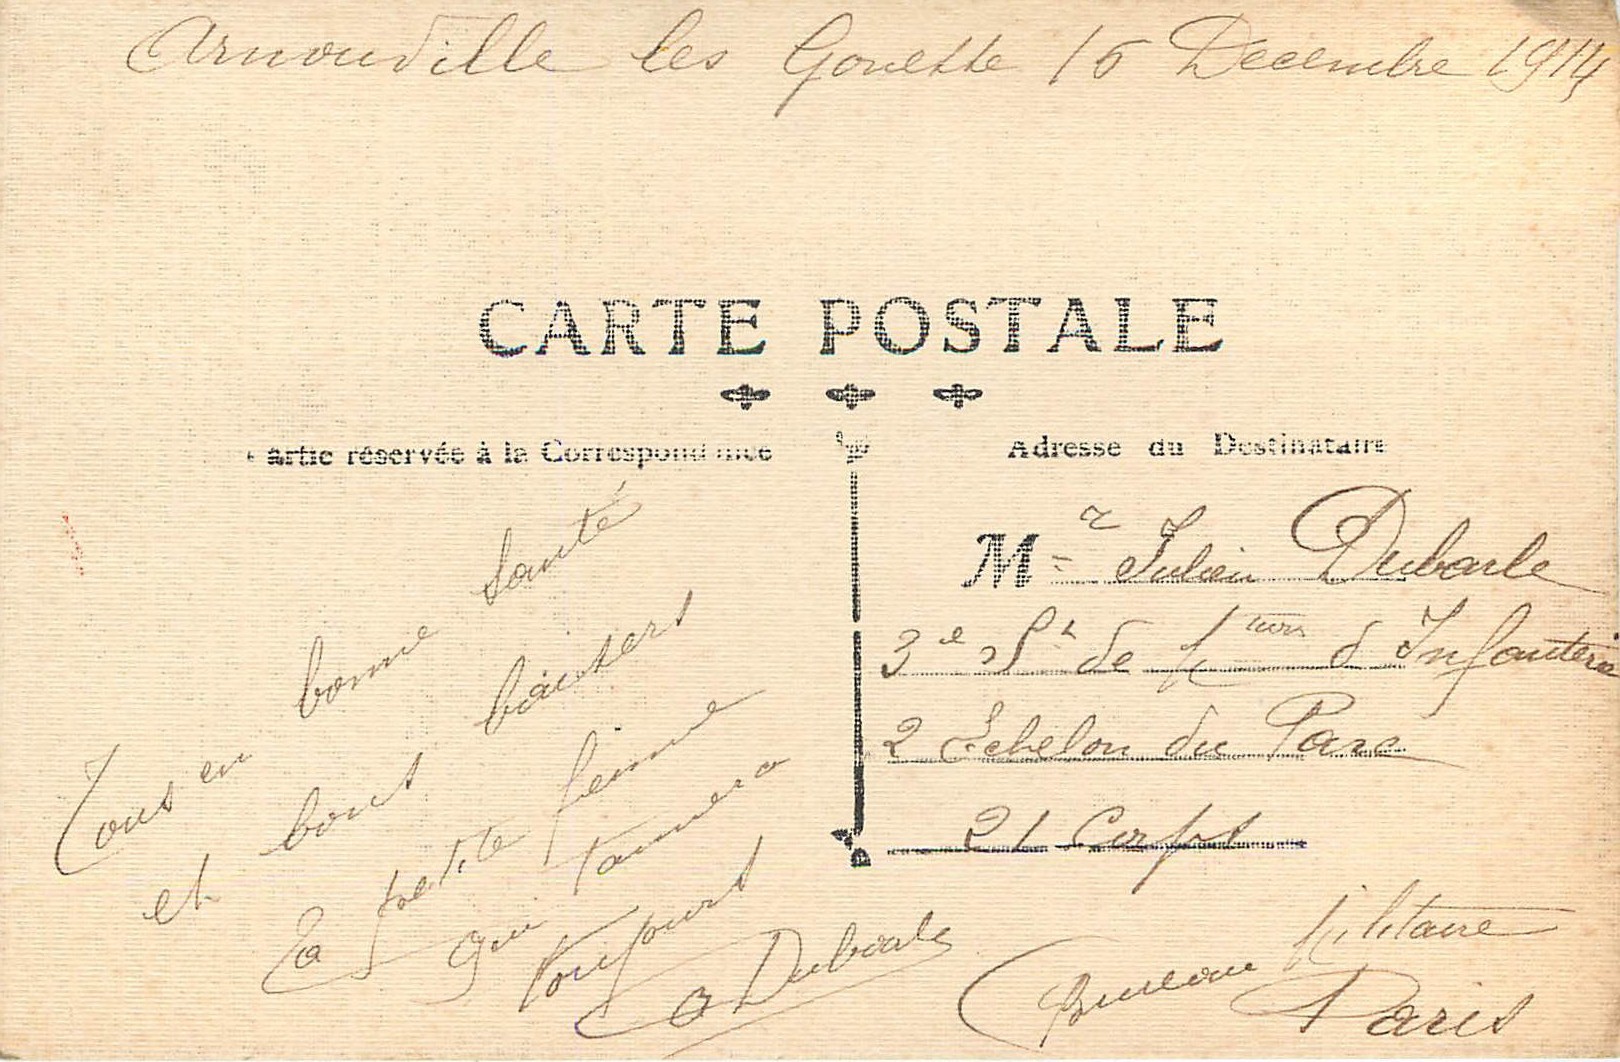 Arnouville les Gonesse 16 Decembre 1914
CARTE POSTALE
Partie réservée à la Correspondance
Adresse du Destinataire
Tous en bonne santé
et bons baisers
ta petite femme
qui t'aimera
toujours
Dubarle
Mr Julien Dubarle
3e Son de Mtions d'Infanterie
2 Echelon du Parc
21 Corps
Bureau Militaire
Paris